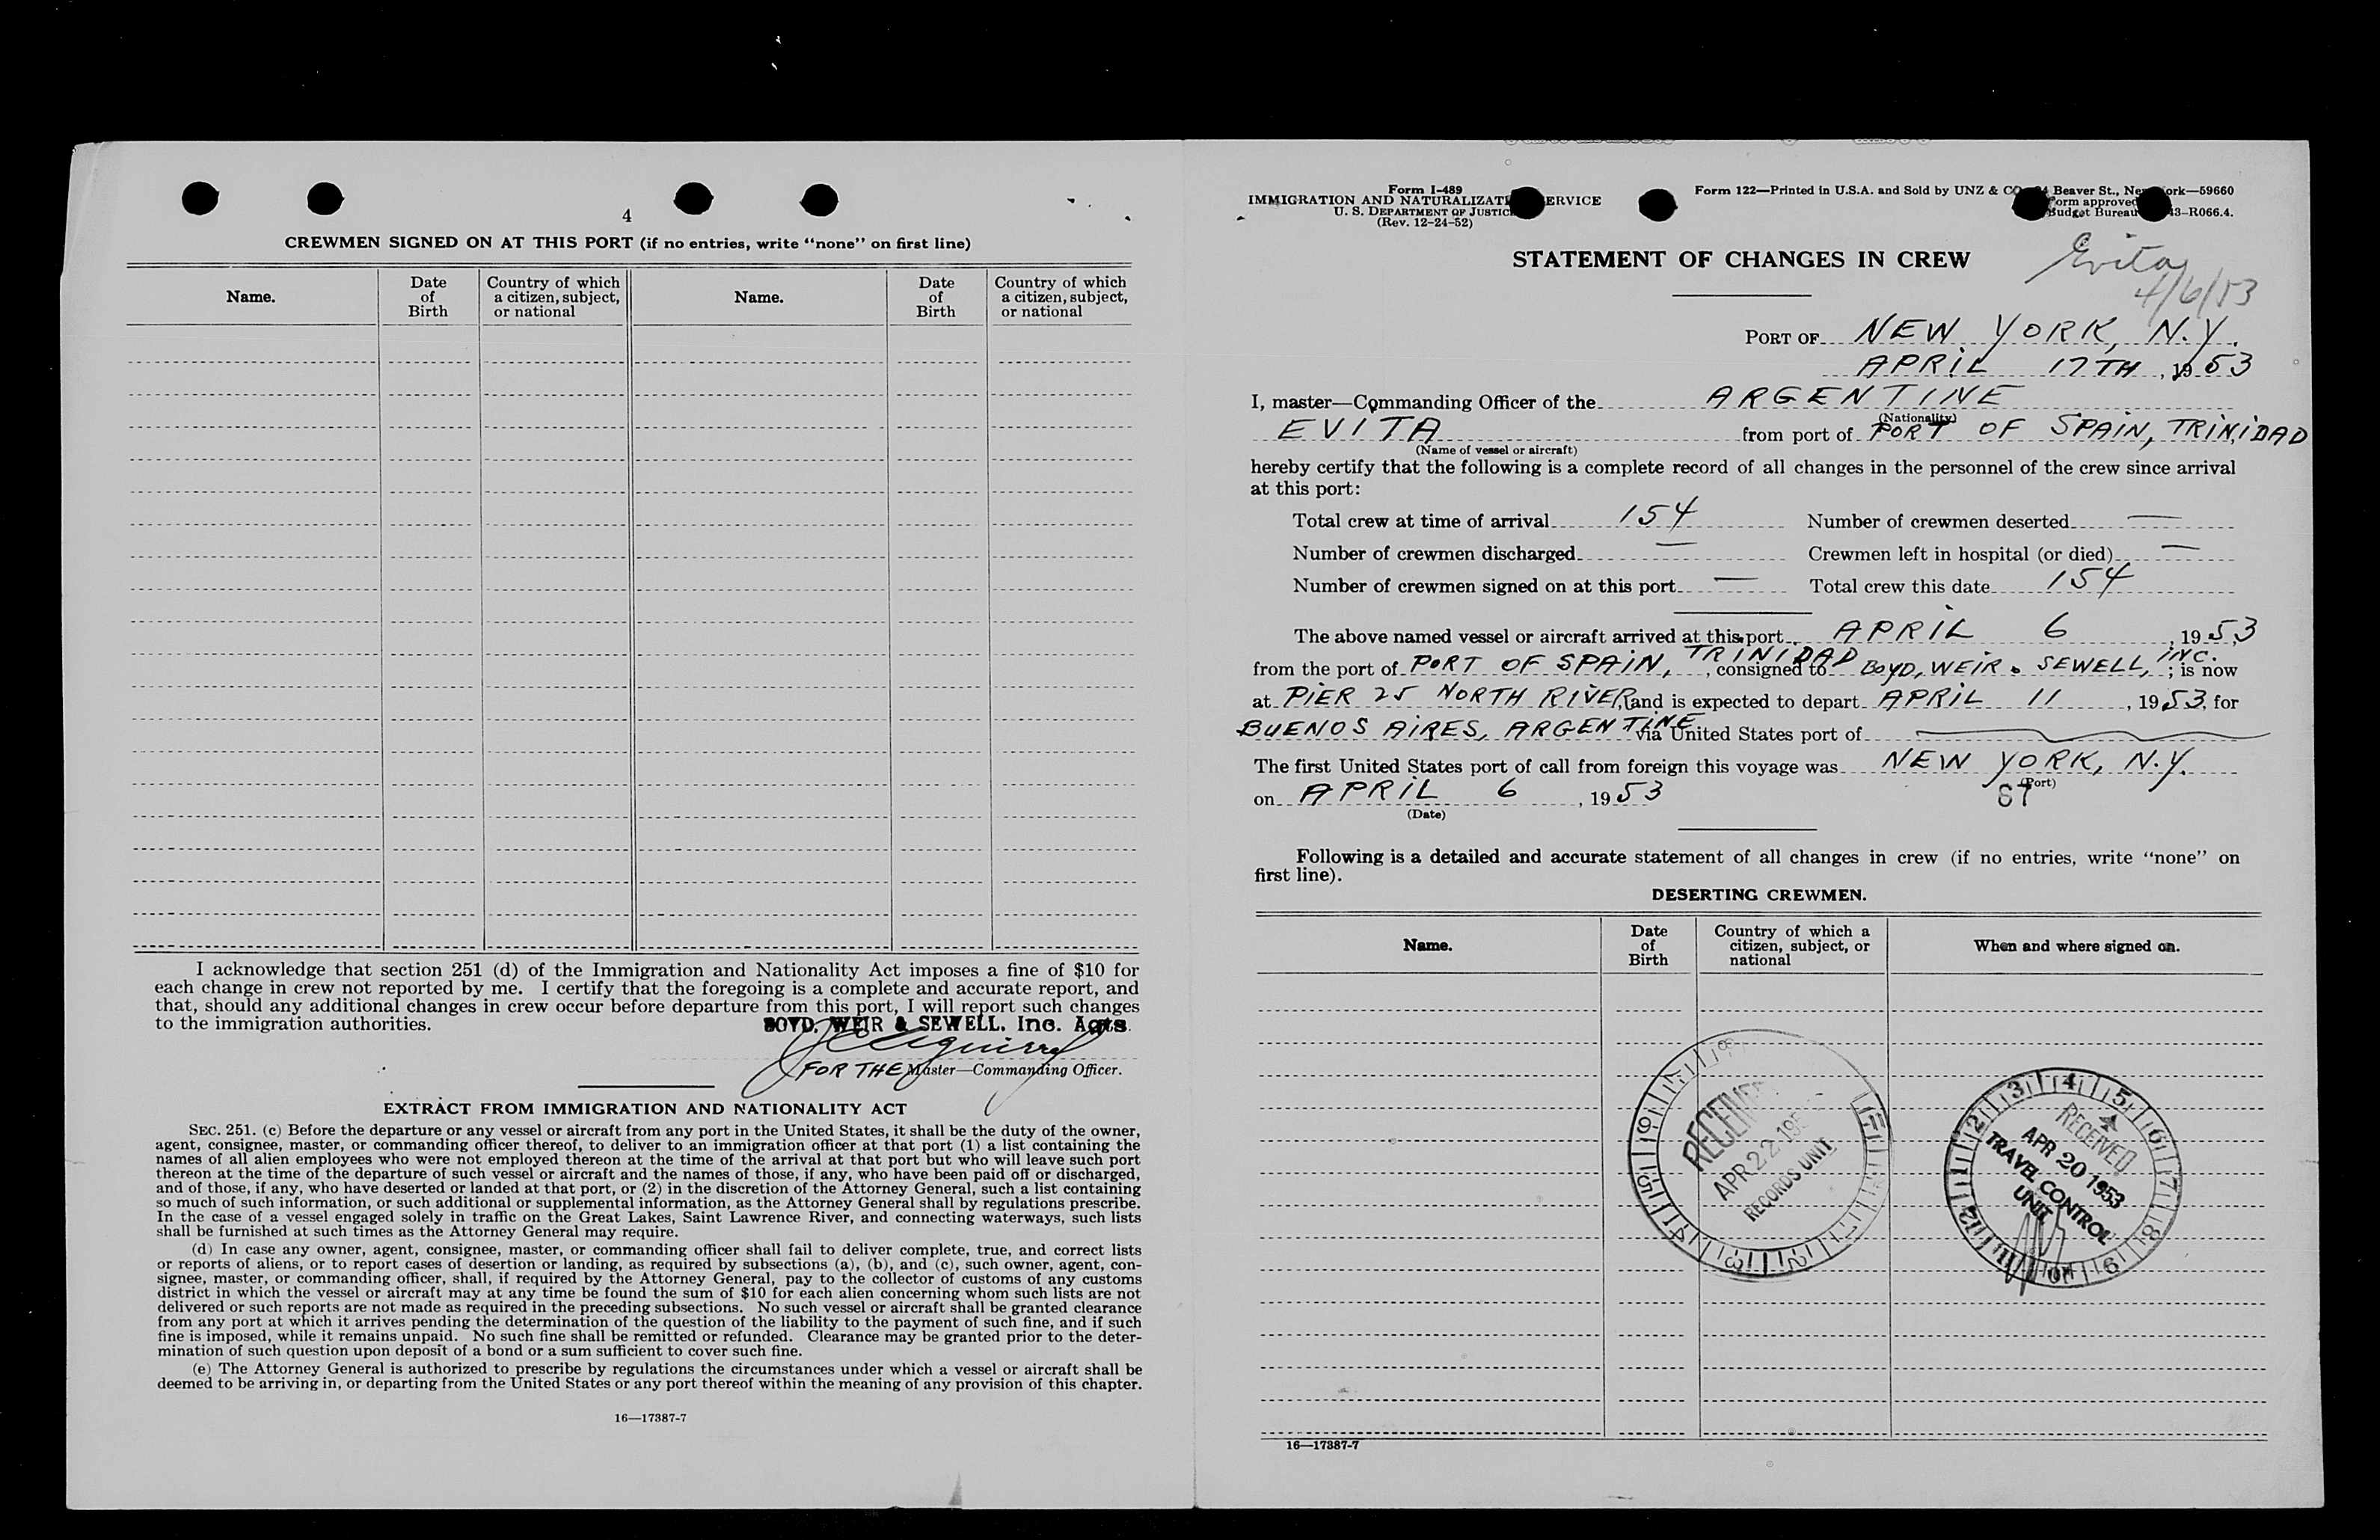 4
CREWMEN SIGNED ON AT THIS PORT (if no entries, write "none" on first line)
Name.
Date of Birth
Country of which a citizen, subject, or national
Name.
Date of Birth
Country of which a citizen, subject, or national
I acknowledge that section 251 (d) of the Immigration and Nationality Act imposes a fine of $10 for
each change in crew not reported by me. I certify that the foregoing is a complete and accurate report, and
that, should any additional changes in crew occur before departure from this port, I will report such changes
to the immigration authorities.
BOYD, WEIR & SEWELL. Inc. Agts.
FOR THE Master—Commanding Officer.
EXTRACT FROM IMMIGRATION AND NATIONALITY ACT
SEC. 251. (c) Before the departure or any vessel or aircraft from any port in the United States, it shall be the duty of the owner,
agent, consignee, master, or commanding officer thereof, to deliver to an immigration officer at that port (1) a list containing the
names of all alien employees who were not employed thereon at the time of the arrival at that port but who will leave such port
thereon at the time of the departure of such vessel or aircraft and the names of those, if any, who have been paid off or discharged,
and of those, if any, who have deserted or landed at that port, or (2) in the discretion of the Attorney General, such a list containing
so much of such information, or such additional or supplemental information, as the Attorney General shall by regulations prescribe.
In the case of a vessel engaged solely in traffic on the Great Lakes, Saint Lawrence River, and connecting waterways, such lists
shall be furnished at such times as the Attorney General may require.
(d) In case any owner, agent, consignee, master, or commanding officer shall fail to deliver complete, true, and correct lists
or reports of aliens, or to report cases of desertion or landing, as required by subsections (a), (b), and (c), such owner, agent, con-
signee, master, or commanding officer, shall, if required by the Attorney General, pay to the collector of customs of any customs
district in which the vessel or aircraft may at any time be found the sum of $10 for each alien concerning whom such lists are not
delivered or such reports are not made as required in the preceding subsections. No such vessel or aircraft shall be granted clearance
from any port at which it arrives pending the determination of the question of the liability to the payment of such fine, and if such
fine is imposed, while it remains unpaid. No such fine shall be remitted or refunded. Clearance may be granted prior to the deter-
mination of such question upon deposit of a bond or a sum sufficient to cover such fine.
(e) The Attorney General is authorized to prescribe by regulations the circumstances under which a vessel or aircraft shall be
deemed to be arriving in, or departing from the United States or any port thereof within the meaning of any provision of this chapter.
16—17387-7
Form I-489
IMMIGRATION AND NATURALIZATI ERVICE
U. S. DEPARTMENT OF JUSTIC
(Rev. 12-24-52)
Form 122—Printed in U.S.A. and Sold by UNZ & CO Beaver St., New ork—59660
orm approved
Budget Bureau 43-R066.4.
STATEMENT OF CHANGES IN CREW
Evita
4/6/53
PORT OF NEW YORK, N.Y.
APRIL 17TH, 1953
I, master—Commanding Officer of the ARGENTINE
(Nationality)
EVITA from port of PORT OF SPAIN, TRINIDAD
(Name of vessel or aircraft)
hereby certify that the following is a complete record of all changes in the personnel of the crew since arrival
at this port:
Total crew at time of arrival 154 Number of crewmen deserted —
Number of crewmen discharged — Crewmen left in hospital (or died) —
Number of crewmen signed on at this port — Total crew this date 154
The above named vessel or aircraft arrived at this port APRIL 6, 1953
from the port of PORT OF SPAIN, TRINIDAD, consigned to BOYD, WEIR & SEWELL, INC.; is now
at PIER 25 NORTH RIVER, and is expected to depart APRIL 11, 1953, for
BUENOS AIRES, ARGENTINE via United States port of
The first United States port of call from foreign this voyage was NEW YORK, N.Y.
(Port)
on APRIL 6, 1953
(Date)
Following is a detailed and accurate statement of all changes in crew (if no entries, write "none" on
first line).
DESERTING CREWMEN.
Name.
Date of Birth
Country of which a citizen, subject, or national
When and where signed on.
RECEIVED
APR 22 195
RECORDS UNIT
RECEIVED
APR 20 1953
TRAVEL CONTROL
UNIT
16—17387-7